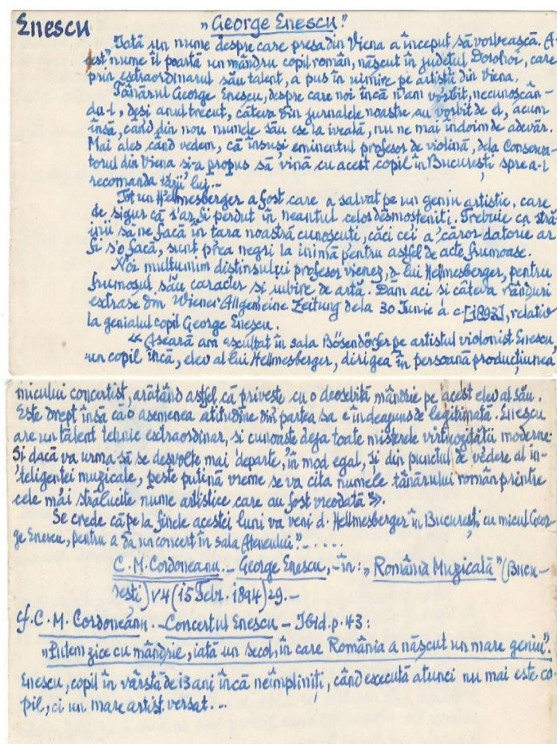 Enescu
„George Enescu."
Iată un nume despre care presa din Viena a început să vorbească. A-
cest nume îl poartă un mândru copil român, născut în județul Dorohoi, care
prin extraordinarul său talent, a pus în uimire pe artiștii din Viena.
Tânărul George Enescu, despre care noi încă n'am vorbit, necunoscân-
du-l, deși anul trecut, câteva din jurnalele noastre au vorbit de el, acum
însă, când din nou numele său ese la iveală, nu ne mai îndoim de adevăr.
Mai ales când vedem, că însuși eminentul profesor de violină, dela Conserva-
torul din Viena și-a propus să vină cu acest copil în București spre a-l
recomanda țării lui...
Tot un Hellmesberger a fost care a salvat pe un geniu artistic, care
de sigur că s'ar fi perdut în neantul celor desmoșteniți. Trebuie ca stră-
inii să ne facă în țara noastră cunoscuți, căci cei a căror datorie ar
fi s'o facă, sunt prea negri la inimă pentru astfel de acte frumoase.
Noi mulțumim distinsului profesor vienez, d-lui Hellmesberger, pentru
frumosul său caracter și iubire de artă. Dăm aci și câteva rânduri
extrase din Wiener Allgemeine Zeitung dela 30 Iunie a c. [1893], relativ
la genialul copil George Enescu.
« Aseară am ascultat în sala Bösendorfer pe artistul violonist Enescu,
un copil încă, elev al lui Hellmesberger, dirigea în persoană producțiunea
micului concertist, arătând astfel că privește cu o deosebită mândrie pe acest elev al său.
Este drept însă că o asemenea atitudine din partea sa e îndeajuns de legitimată. Enescu
are un talent tehnic extraordinar, și cunoaște deja toate misterele virtuozității moderne.
Și dacă va urma să se desvolte mai departe, în mod egal, și din punctul de vedere al in-
teligenței muzicale, peste puțină vreme se va cita numele tânărului român printre
cele mai strălucite nume artistice care au fost vreodată ».
Se crede că pe la finele acestei luni va veni d. Hellmesberger în București cu micul Geor-
ge Enescu, pentru a da un concert în sala Ateneului"....
C. M. Cordoneanu. - George Enescu, - în: „România Muzicală" (Bucu-
rești) V 4 (15 Febr. 1894) 29. -
cf. C. M. Cordoneanu. - Concertul Enescu - Ibid. p. 43:
„Putem zice cu mândrie, iată un secol, în care România a născut un mare geniu".
Enescu, copil în vârstă de 13 ani încă neîmpliniți, când execută atunci nu mai este co-
pil, ci un mare artist versat. ..